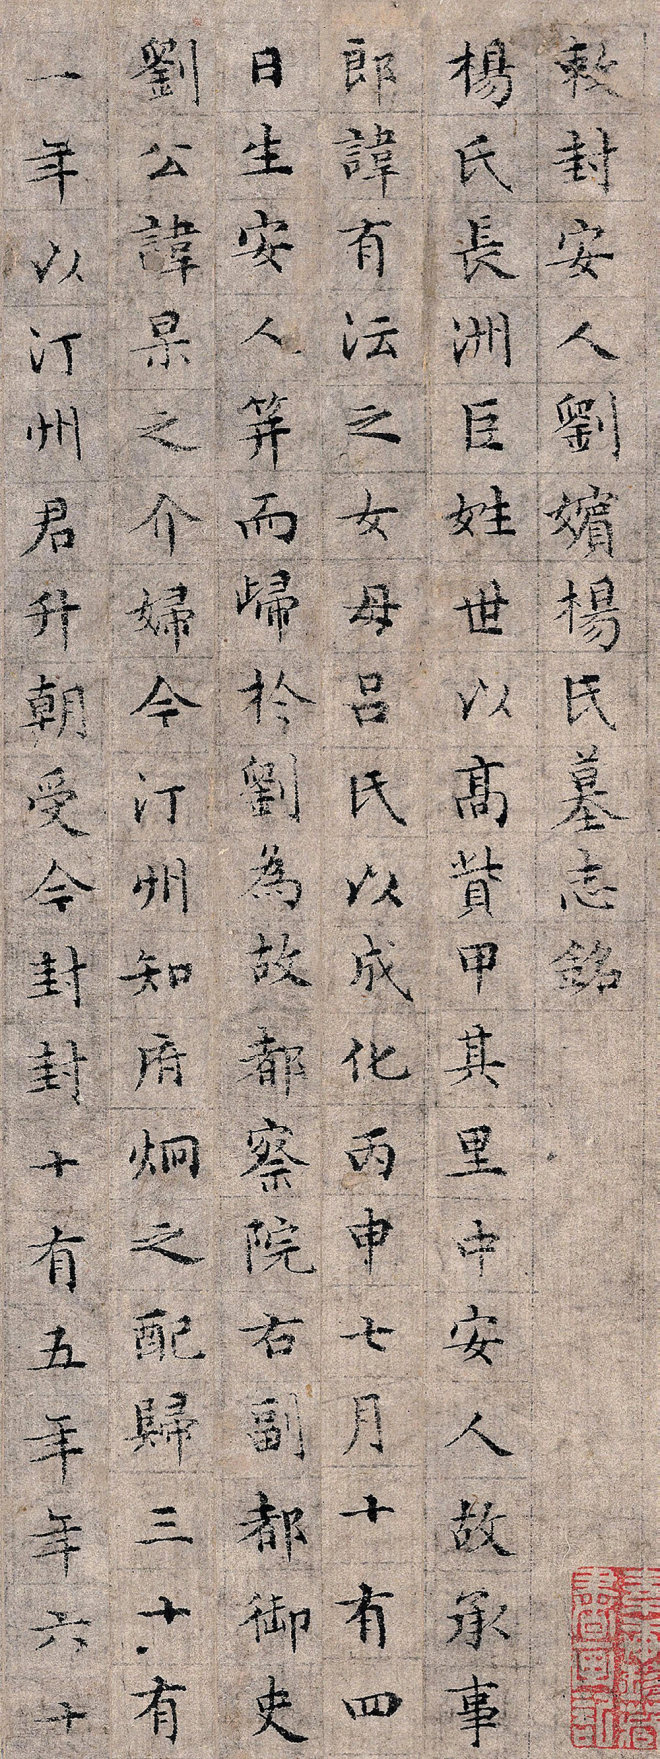 敕封安人劉嬪楊氏墓志銘
楊氏長洲臣姓世以高貲甲其里中安人故承事
郎諱有沄之女母呂氏以成化丙申七月十有四
日生安人筓而歸於劉為故都察院右副都御史
劉公諱杲之介婦今汀州知府炯之配歸三十有
一年以汀州君升朝受今封封十有五年年六十